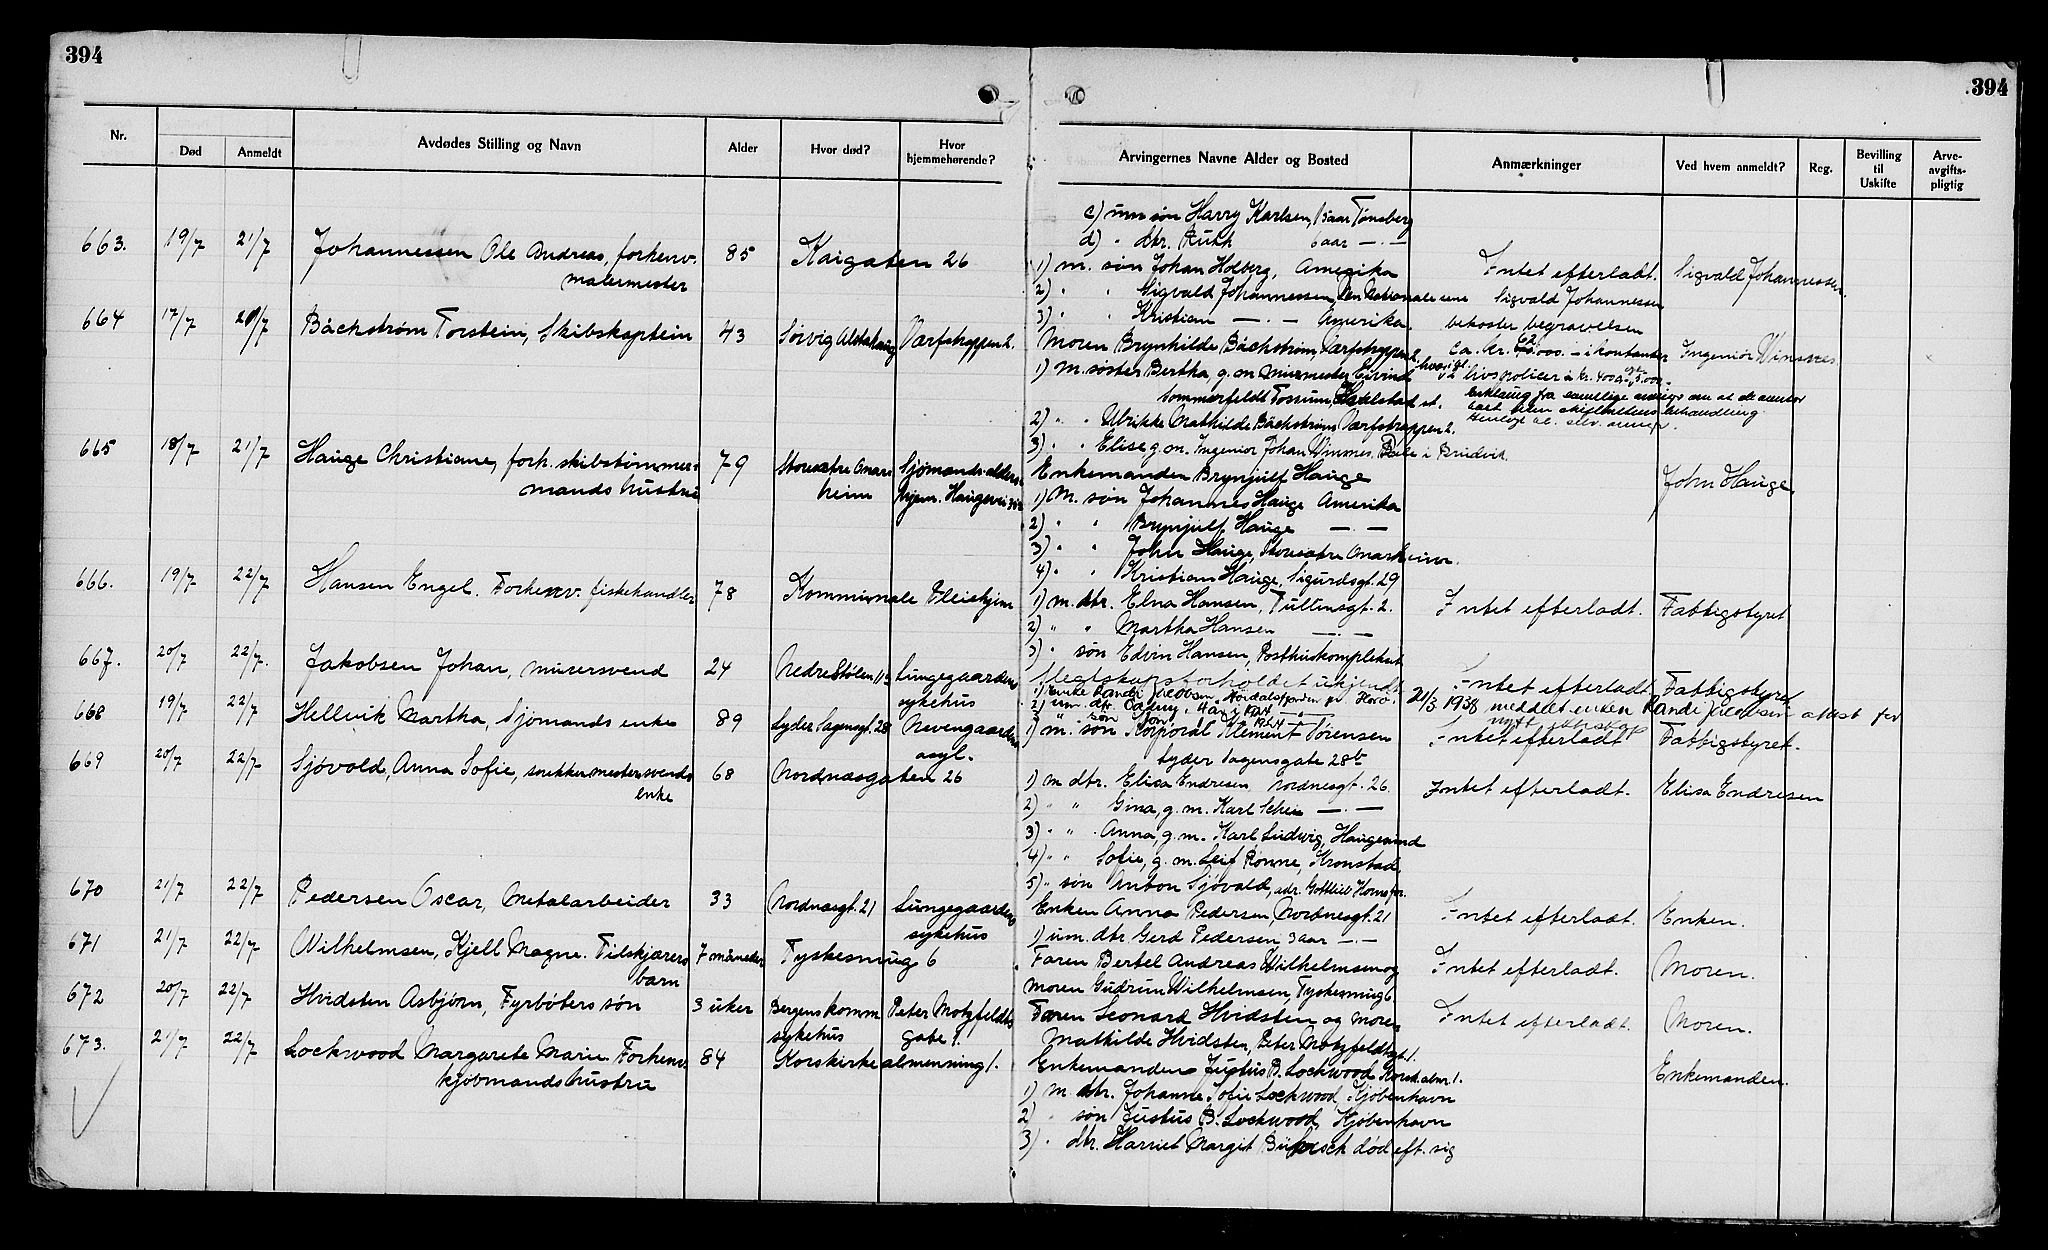 394
394
Nr.
Død
Anmeldt
Avdødes Stilling og Navn
Alder
Hvor død?
Hvor hjemmehørende?
Arvingernes Navne Alder og Bosted
Anmærkninger
Ved hvem anmeldt?
Reg.
Bevilling til Uskifte
Arve-avgifts-pligtig
c) um søn Harry Karlsen, 13 aar Tønsberg
d) " dtr. Ruth 6 aar —.—
663. 19/7 21/7 Johannessen Ole Andreas, forhenv. 85 Kaigaten 26
malermester
1) m. søn Johan Holberg, Amerika Intet efterladt. Sigvald Johannessen.
2) " " Sigvald Johannessen, Den Nationale scene Sigvald Johannessen
3) " " Kristian —.— Amerika. bekoster begravelsen
664 17/7 20/7 Bäckstrøm Torstein, Skibskaptein 43 Sørvig Alstahaug Værfstrappen 2.
Moren Brynhilde Bäckstrøm, Værfstrappen 2. ca. kr. 000.- i kontanter Ingeniør Winsnes
1) M. søster Bertha g.m. Murmester Eivind livspolicer à kr. 4000
Sommerfeldt Tossum, Karlstad st. erklæring fra samtlige
2) " " Ulrikke Mathilde Bäckstrøm Værfstrappen 2.
3) " " Elise, g.m. Ingeniør Johan Winsnes, i Bruvik.
665 18/7 21/7 Hauge Christiane, forh. skibstømmer- 79 Storesætre Aaar- Sjømands-alders-
mands hustru heim hjem. Haugeveien
Enkemanden Brynjulf Hauge John Hauge.
1) M. søn Johannes Hauge Amerika
2) " " Brynjulf Hauge —.—
3) " " John Hauge, Storesætre
4) " " Kristian Hauge, Sigurdsgt. 29
666. 19/7 22/7 Hansen Engel. Forhenv. fiskehandler 78 Kommunale Pleiehjem
1) m. dtr. Elna Hansen, Tullinsgt. 2. Intet efterladt. Fattigstyret
2) " " Martha Hansen —.—
3) " søn Edvin Hansen, Posthuskomplekset
667. 20/7 22/7. Jakobsen Johan, murersvend 24 Nedre Stølen 11b Lungegaardens
sykehus
Slegtskapsforholdet ukjendt Intet efterladt Fattigstyret
1) Enke Randi Jacobsen, 21/3 1938 meddelt enken Randi Jacobsen attest for
2) um. dtr.
" søn
668 19/7 22/7 Hellvik Martha, Sjømands enke 89 Lyder Sagensgt. 28 Nevengaardens
asyl.
1) m. søn Korporal Klement Sørensen Intet efterladt Fattigstyret.
Lyder Sagensgate 28b
669 20/7 22/7 Sjøvold, Anna Sofie, snekkermestersvends 68 Nordnæsgaten 26
enke
1) m dtr. Elisa Endresen nordnesgt. 26 Intet efterladt. Elisa Endresen
2) " " Gina, g.m. Karl Schei —.—
3) " " Anna, g.m. Karl Ludwig, Haugesund
4) " " Sofie, g.m. Leif Rønne, Kronstad,
5) " søn Anton Sjøvold, adr. Gottlieb Hornsfor.
670 21/7 22/7 Pedersen Oscar, Metalarbeider 33 Nordnæsgt. 21 Lungegaardens
sykehus
Enken Anna Pedersen, Nordnesgt. 21 Intet efterladt. Enken.
1) um. dtr Gerd Pedersen 3 aar —.—
671 21/7 22/7 Wilhelmsen, Kjell Magne. Tilskjærers 7 måneder Tyskesmug 6
barn
Faren Bertel Andreas Wilhelmsen og Intet efterladt. Moren.
moren Gudrun Wilhelmsen, Tyskesmug 6
672 20/7 22/7 Hvidsten Asbjørn, Fyrbøters søn 3 uker Bergens komm Peter Motzfeldts
sykehus gate 1.
Faren Leonard Hvidsten og moren Intet efterladt. Moren.
Mathilde Hvidsten, Peter Motzfeldtsgt. 1.
673. 21/7 22/7 Lockwood Margarete Marie Forhenv. 84 Korskirkealmenning 1.
kjøbmands hustru
Enkemanden Justus B. Lockwood Korsk.alm. 1. Enkemanden.
1) m dtr. Johanne Sofie Lockwood, Kjøbenhavn
2) " søn Justus B. Lockwood Kjøbenhavn
3) " dtr. Harriet Margit død eft. sig